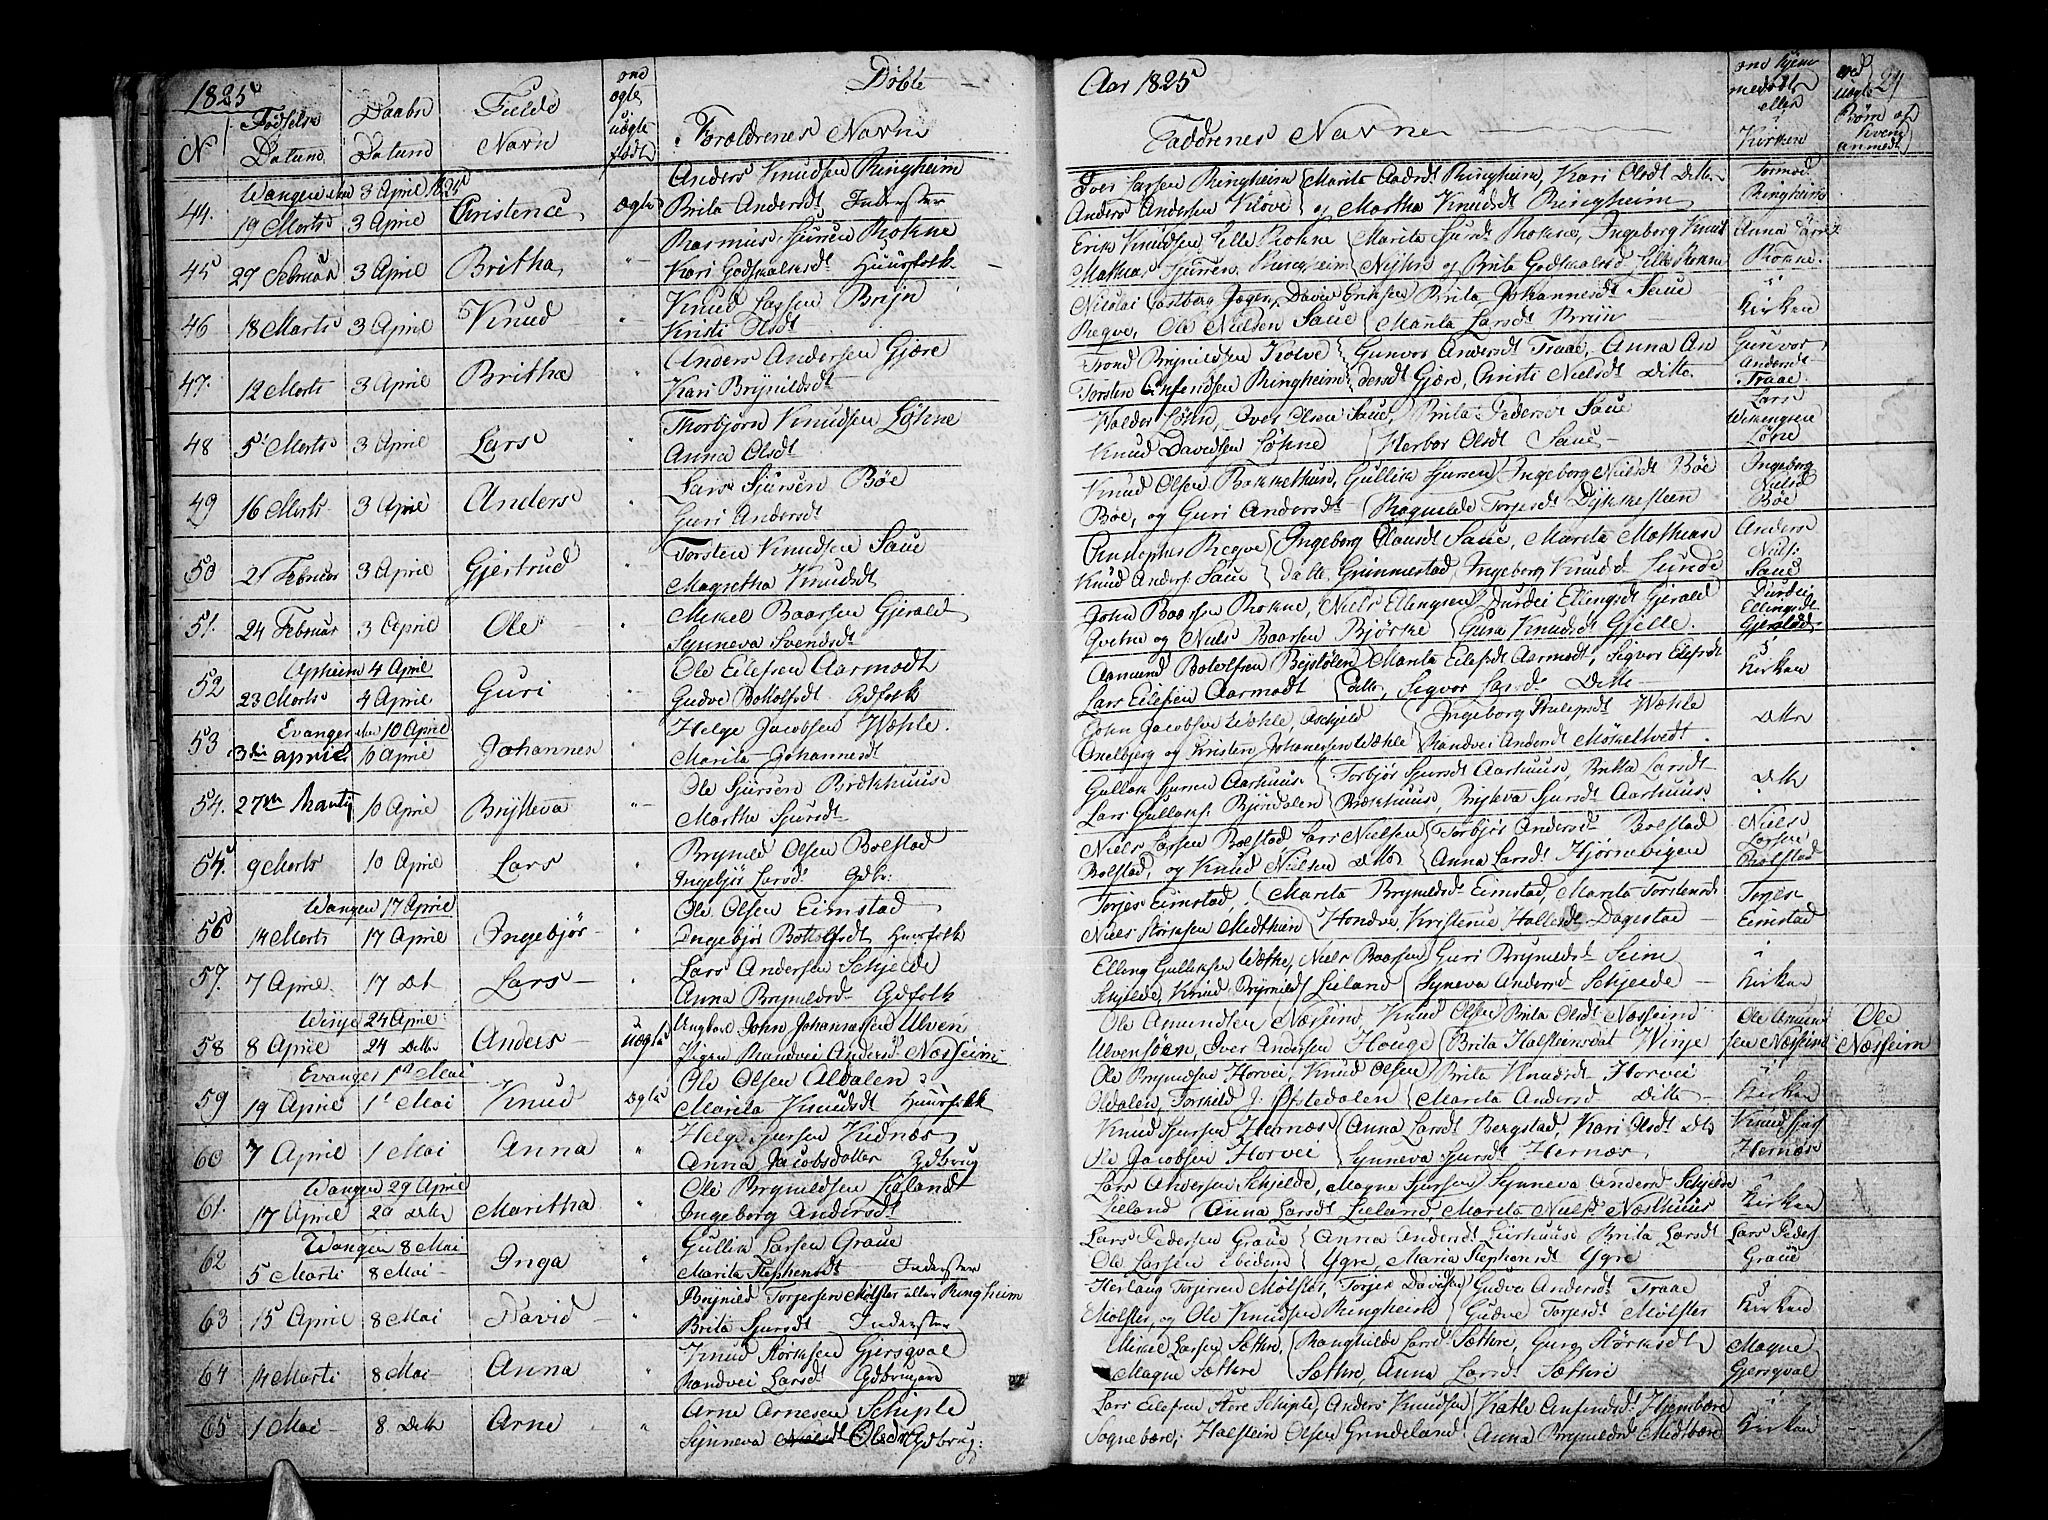 1825
Døbte
N
Fødsels Datum
Daabs Datum
Fulde Navn
om ægte uægte født
Forældrenes Navn
Wangen den 3 April 1825
44. 19 Marts 3 April Christence Ægte
Anders Knudsen Ringheim
Brita Andersdt Inderster
45 27 Februar 3 April Britha
Rasmus Sjursen Rokne
Kari Godskalksdt Huusfolk
46 18 Marts 3 April Knud
Knud Larsen Bryn
Kristi Olsdt
47. 12 Marts 3 April Britha
Anders Andersen Gjære
Kari Brynildsdt
48 5 Marts 3 April Lars
Thorbjørn Knudsen Løhne
Anna Olsdt
49 16 Marts 3 April Anders
Lars Sjursen Bøe
Guri Andersdt
50 21 Februar 3 April Gjertrud
Torsten Knudsen Saue
Magretha Knudsdt
51. 24 Februar 3 April Ole
Mikel Baarsen Gjerald
Synneva Svendsdt
4 April
52 23 Marts 4 April Guri
Ole Eilefsen Aarmodt
Gudve Botolfsdt Gdfolk
Evanger den 10 April
53 3die april 10 April Johannes
Helge Jacobsen Wæhle
Marita Johannesdt
54. 27 10 April Brytteva
Ole Sjursen Brækhuus
Martha Sjursdt
54. 9 Marts 10 April Lars
Brynild Olsen Bolstad
Ingebjør Larsdt Gdbr.
Wangen 17 April
56 14 Marts 17 April Ingebjør
Ole Olsen Eimstad
Ingebjør Botholfsdt Huusfolk
57. 7 April 17 Dt Lars
Lars Andersen Schjelde
Anna Brynildsdt Gdfolk
Winje 24 April
58 8 April 24 Ditto Anders Uægte
Ungkarl John Johannessen Ulven
Pigen Randvei Andersdt Næsheim
Evanger 1 Mai
59 19 April 1 Mai Knud Ægte
Ole Olsen Aldalen
Marita Knudsdt Huusfolk
60 7 April 1 Mai Anna
Helge Sjursen Kidnæs
Anna Jacobsdatter Gdbrug
Wangen 29 April
61. 17 April 29 Ditto Maritha
Ole Brynildsen Lieland
Ingeborg Andersdt
Wangen 8 Mai
62 5 Marti 8 Mai Inga
Gullik Larsen Graue
Marita Stephensdt Inderster
63 15 April 8 Mai David
Brynild Torjersen Mølster eller Ringheim
Brita Sjursdt Inderster
64 14 Marti 8 Mai Anna
Knud Størksen Gjersqval
Randvei Larsdt Gdbrugere
65 1 Mai 8 Ditto Arne
Arne Arnesen Schiple
Synneva Olsdt Gdbrug:
Aar 1825
Faddrenes Navne
om hjemmedøbt eller i Kirken
ved Uægte Børn af hvem anmeldt
Iver Larsen Ringheim Marita Andsdt Ringheim, Kari Olsdt Ditto
Anders Andersen Kløve og Martha Knudsdt Ringheim
Ringheim
Erik Knudsen Lille Rokne Marita Sjursdt Rokne, Ingeborg Knudsdt
Mathias Sjursen Ringheim og Brita Godskalksd Lille Rokne
Rokne.
Nicolai Brita Johannesdt Saue
Regve, Ole Nielsen Saue Marita Larsdt Bruin
i Kirken
Trond Brynildsen Kolve Gunvor Andersdt Traae, Anna An
Torsten Ringheim dersdt Gjære, Christi Nielsdt Ditto
Gunevor Andersdt Traae.
Iver Olsen Saue Brita Pedersdt Saue
Knud Davidsen Løhne Herbor Olsdt Saue
Lars Løne
Knud Olsen Bakkethun, Gullik Sjursen Ingeborg Nielsdt Bøe
Bøe, og Guri Andersdt Ragnilde Torjersdt Dykkesteen
Ingeborg Nielsd Bøe
Regve Ingeborg Saue, Marita Mathias
Knud Anders. Saue datt. Grimmestad, Ingeborg Knudsd Lunde
Anders Niels: Saue
John Baarsen Rokne, Niels Ellingsen Durdei Ellingsdt Gjerald
Qvetne og Niels Baarsen Bjørke Guro Knudsdt Gjelle.
Durdei Ellingsdt Gjerald
Aamund Botolfsen Bystølen Marita Eilefsdt Aarmodt, Sigvor Eilefsdt
Lars Eilefsen Aarmodt ditto, Sigvor Larsdt Ditto
i Kirken
John Jacobsen Wæhle Ingeborg Philipsdt Wæhle
og Kristen Johannessen Wæhle Randvei Andersdt
ditto
Gullak Sjursen Aarhuus Torbjør Sjursdt Aarhuus, Britta Larsdt
Lars Gullaks. Byrdalen Brækhuus, Brytteva Sjursdt Aarhuus.
ditto
Niels Larsen Bolstad Lars Nielsen Torbjør Andersdt Bolstad
Bolstad, og Knud Nielsen Ditto Anna Larsdt Hjørnevigen
Niels Larsen Bolstad
Torjer Eimstad, Marita Brynildsdt Eimstad, Marita Torstensdt
Niels Størksen Midthun Hondve Kristense Dagestad
Torjer Eimstad
Elling Gulliksen Wæthe, Niels Baarsen Guri Brynildsdt Seim
Schjelde, Knud Brynild Lieland Synneva Andersdt Schjelde
i Kirken
Ole Amundsen Næsheim Knud Olsen Brita Olsdt Næsheim
Ulven, Iver Andersen Houge Brita Halsteinsdat Winje
Ole Amundsen Næsheim
Ole Næsheim
Ole Brynildsen Horvei, Knud Olsen Brita Knudsdt Horvei
Oldalen, Torkild J. Øfstedalen Marita Andersd Ditto
i Kirken
Knud Sjursen Hernæs Anna Larsdt Bergstad, Kari Olsdt Dto
Ole Jacobsen Horvei Synneva Sjursdt Hernæs,
Knud Sjurs Hernæs
Lars Andersen Schjelde, Magne Sjursen Synneva Andersd Schjelde
Lieland Anna Larsdt Lieland Marita Nielsdt Næsthuus
i Kirken
Lars Pedersen Graue Anna Andersdt Brita Larsdt
Ole Larsen ibidem Ygre, Maria Stephensdt Ygre
Lars Peders Graue
Herlaug Torjersen Mølster, Torjer Davidsen Gudve Andersdt Traae
Mølster, og Ole Knudsen Ringheim Gudve Torjersdt Mølster
i Kirken
Mikel Larsen Sæthre, Ranghilde Larsd Sæthre, Guro Størksdt
Magne Sæthre Sæthre, Anna Larsdt Sæthre
Magne Gjersqval
Lars Eilefsen Aare Schiple Anders Knudsen Kathe Hjembære
Sognebære; Halstein Olsen Grindeland Anna Brynildsdt Midtbære
i Kirken